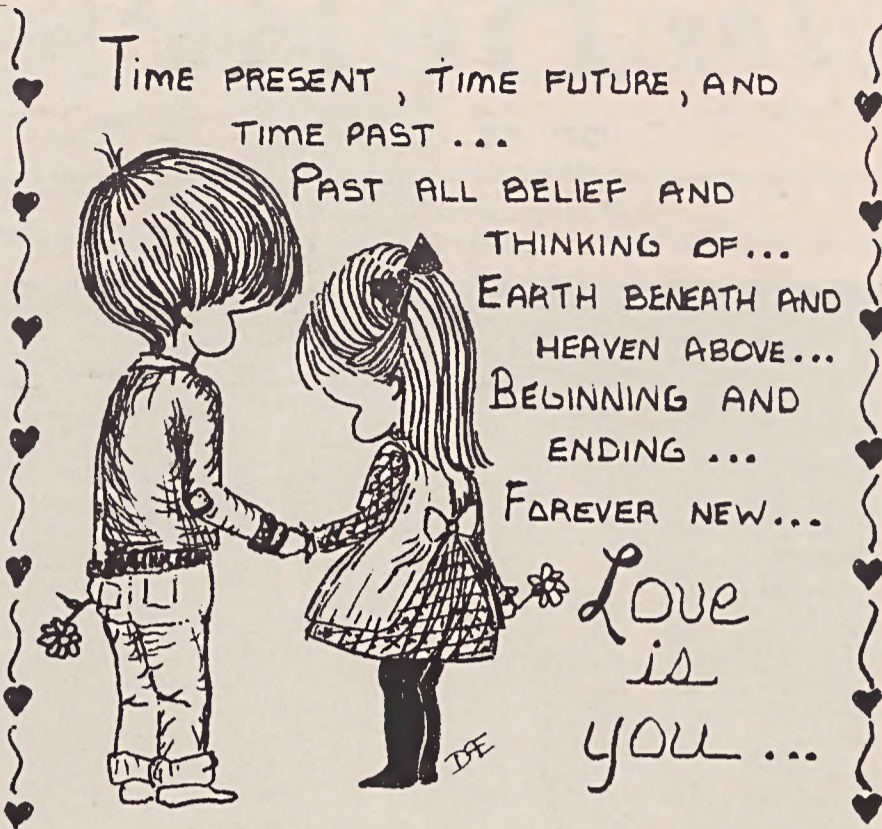 TIME PRESENT, TIME FUTURE, AND
TIME PAST ...
PAST ALL BELIEF AND
THINKING OF...
EARTH BENEATH AND
HEAVEN ABOVE...
BEGINNING AND
ENDING ...
FOREVER NEW...
Love
is
you...
DE